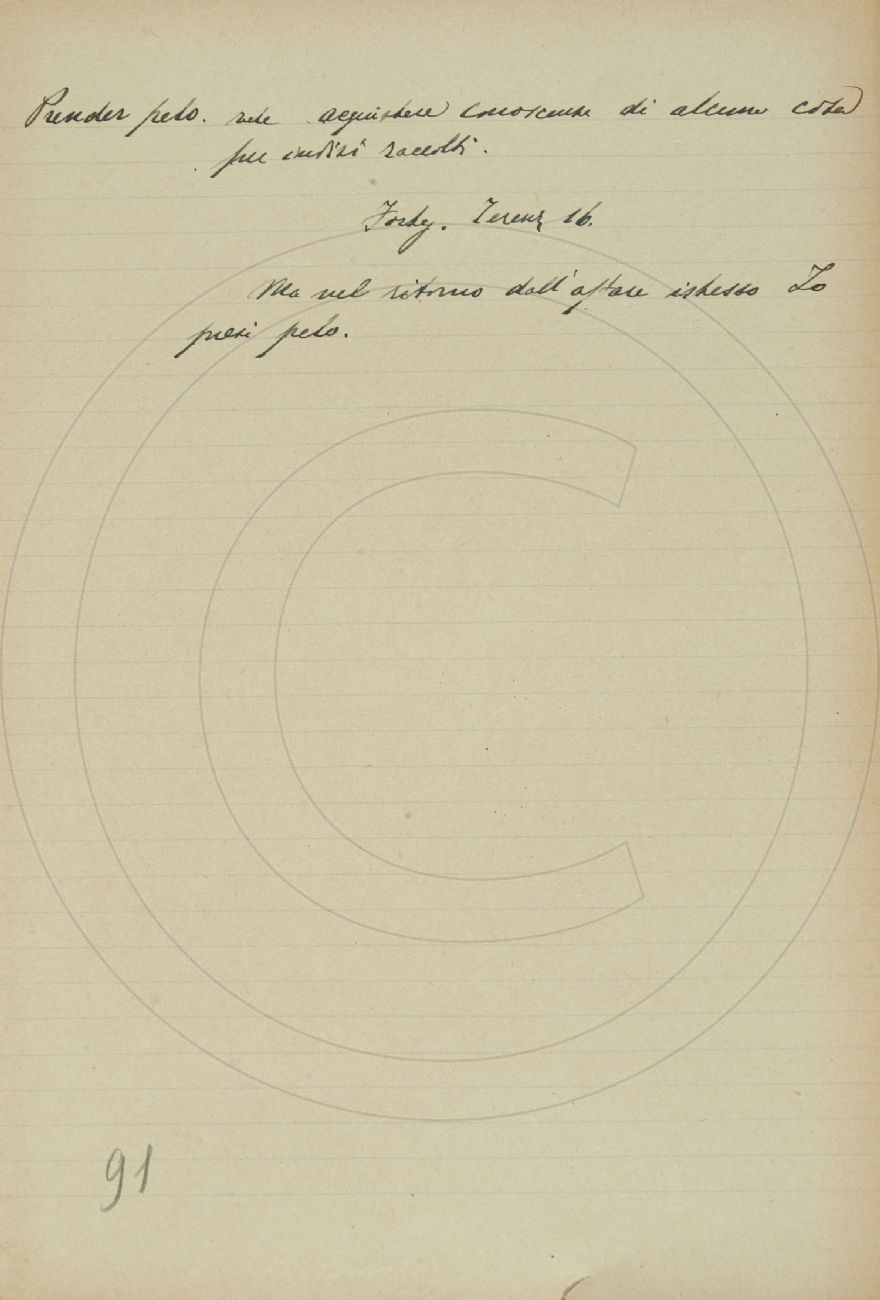 Prender pelo. vale acquistare conoscenza di alcuna cosa
per indizi raccolti.
Forteg. Terenz 16.
Ma nel ritorno dall'affare istesso Io
presi pelo.
91